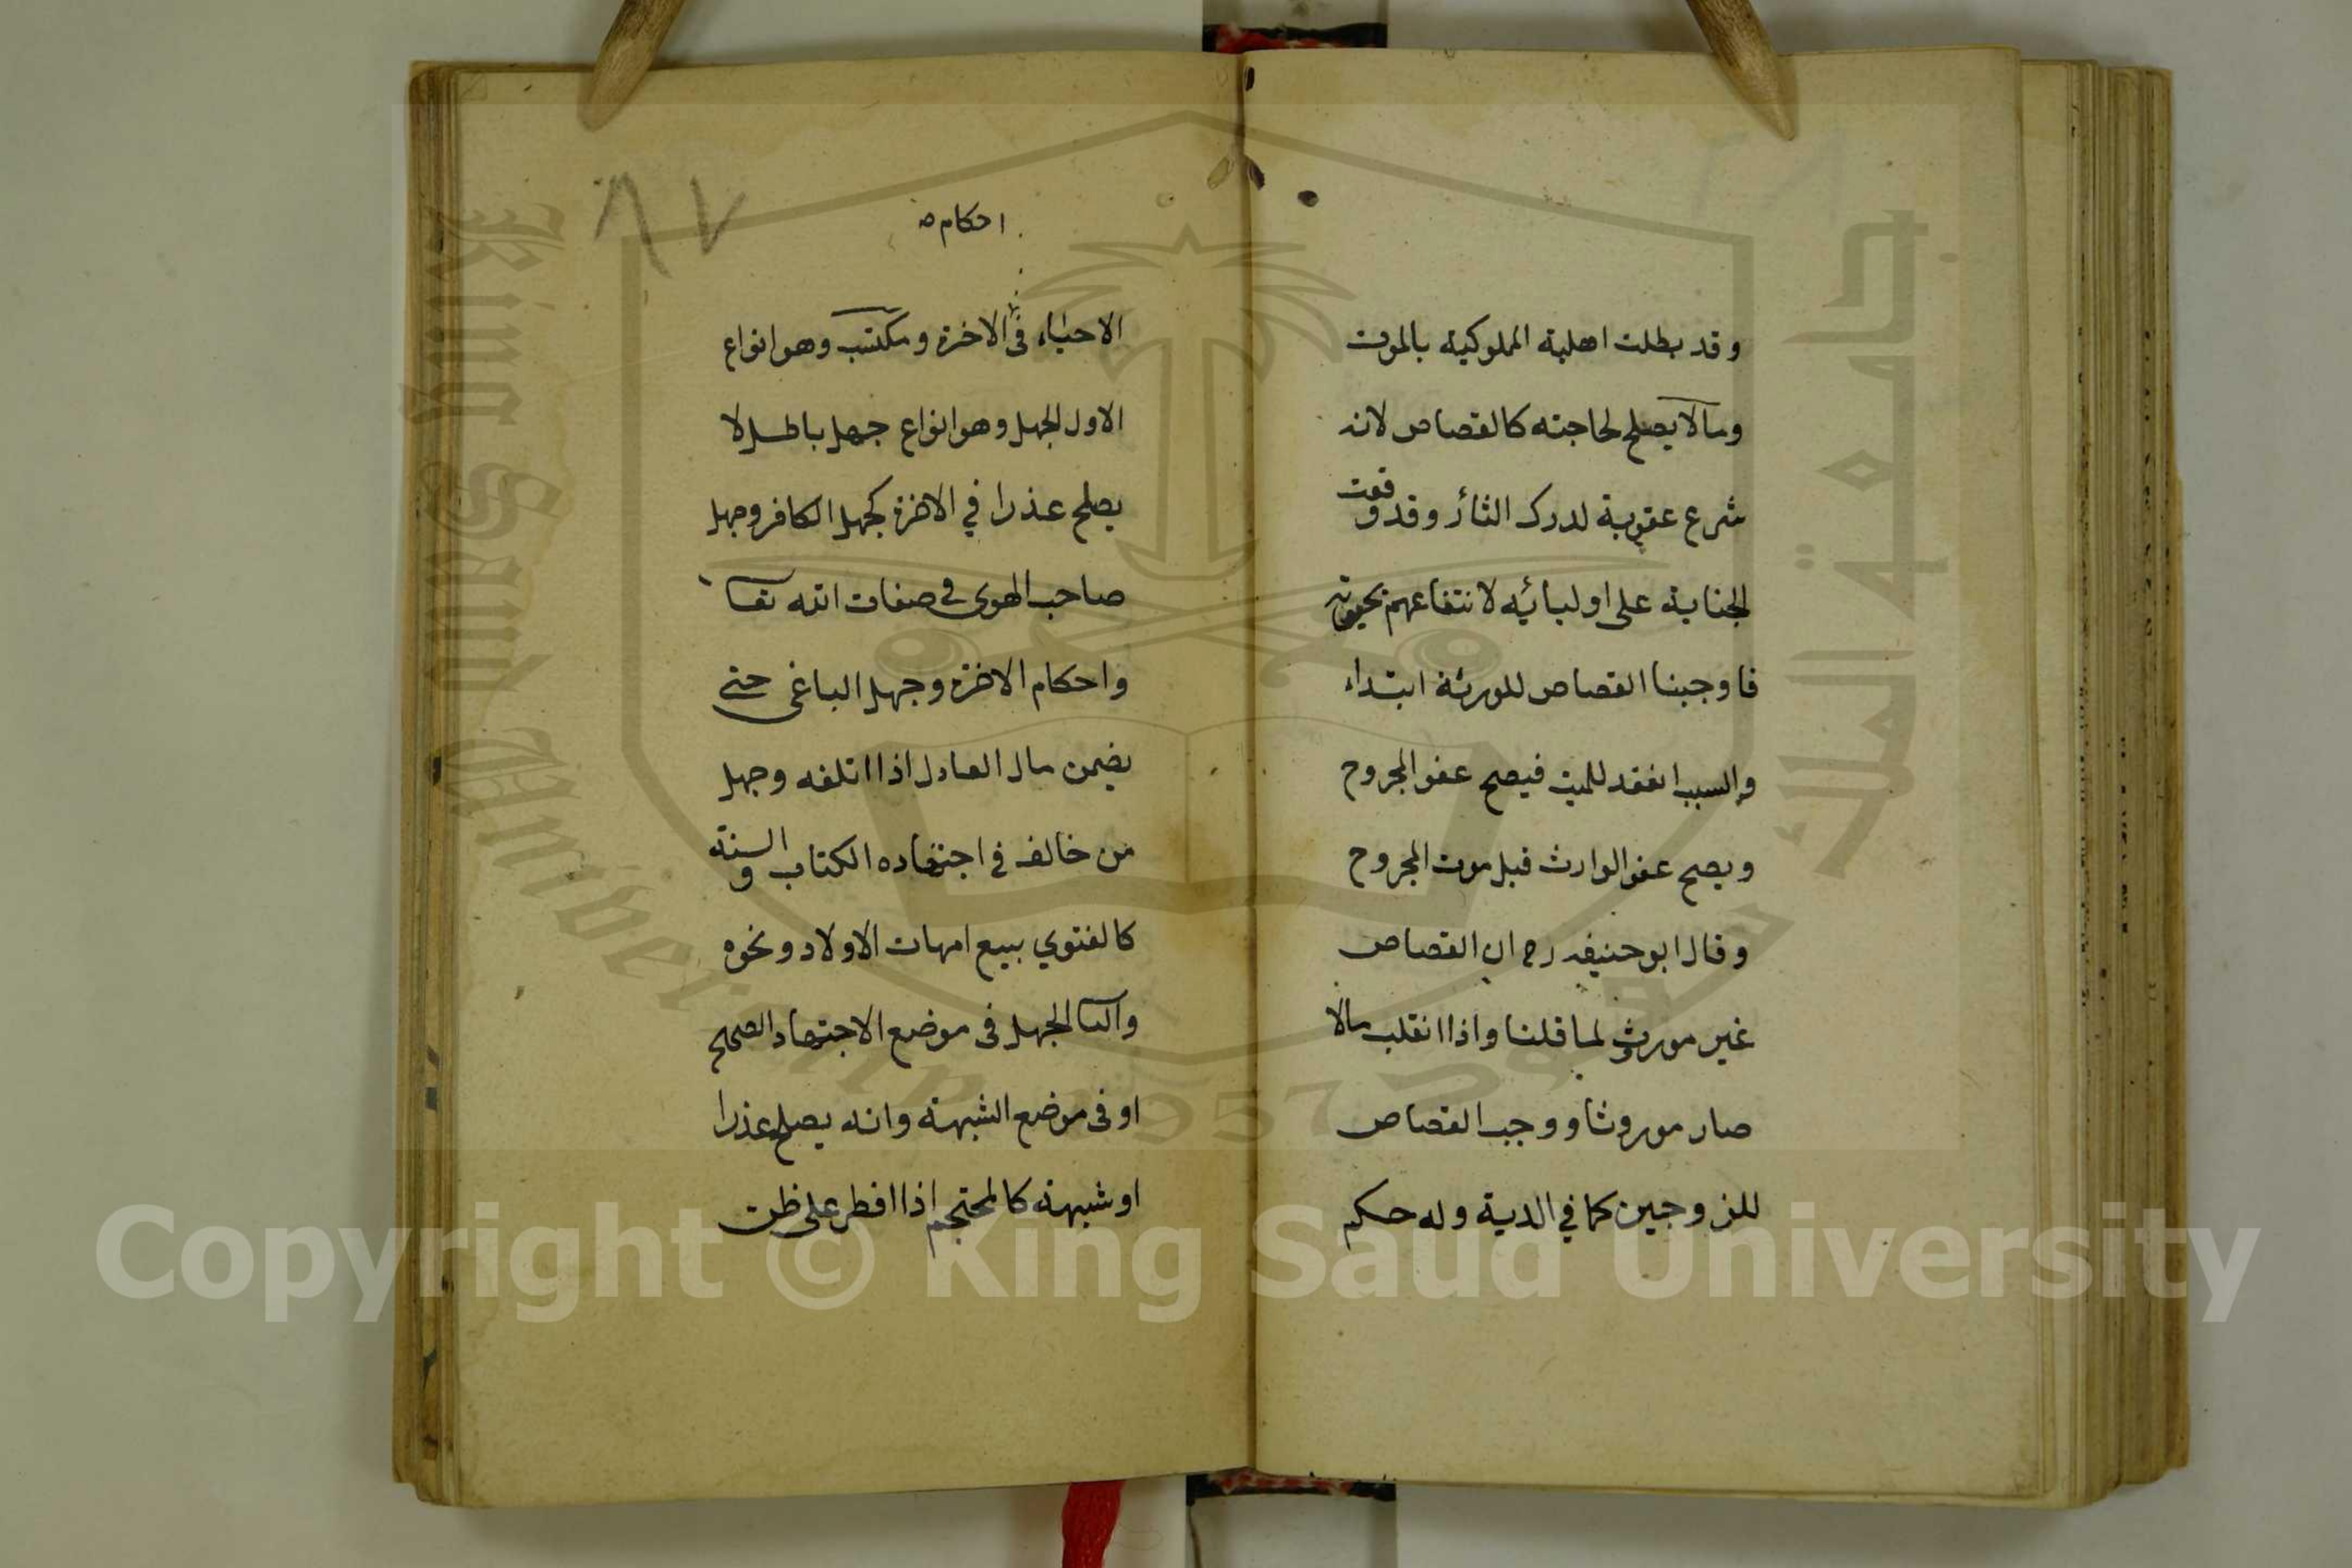 وقد بطلت اهلية المملوكية بالموت
ومالا يصلح لحاجته كالقصاص لانه
شرع عقوبة لدرك الثأر وقد وقعت
الجناية على اوليائيه لانتفاعهم بحيوته
فاوجبنا القصاص للورثة ابتداء
والسبب انعقد للميت فيصح عفو المجروح
ويصح عفو الوارث قبل موت المجروح
وقال ابو حنيفه رح ان القصاص
غير موروث لما قلنا واذا انقلب مالا
صار موروثا ووجب القصاص
للزوجين كما في الدية وله حكم
٨٧
احكام صه
الاحياء فى الاخرة ومكتسب وهو انواع
الاول الجهل وهو انواع جهل باطل لا
يصلح عذرا في الاخرة كجهل الكافر وجهل
صاحب الهوى في صفات الله تعا
واحكام الاخرة وجهل الباغى حتى
يضمن مال العادل اذا اتلفه وجهل
من خالف في اجتهاده الكتاب والسنة
كالفتوي ببيع امهات الاولاد ونحوه
والثا الجهل فى موضع الاجتهاد الصحيح
او فى موضع الشبهة وانه يصلح عذرا
او شبهة كالمحتجم اذا افطر على ظن
جامعة الملك سعود
King Saud University
1957
Copyright © King Saud University